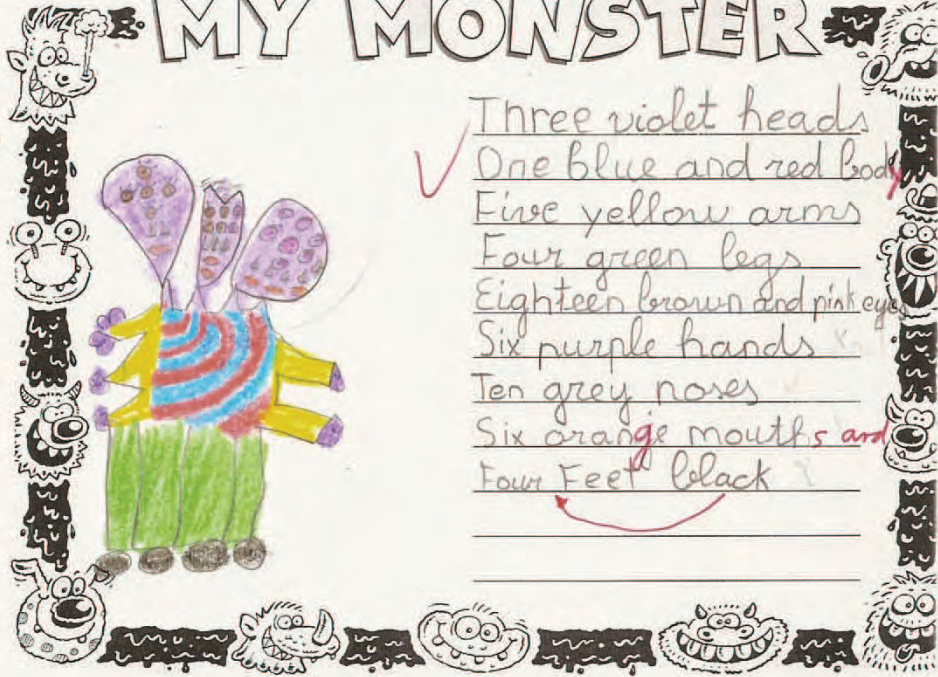 MY MONSTER
Three violet heads
One blue and red body
Five yellow arms
Four green legs
Eighteen brown and pink eyes
Six purple hands
Ten grey noses
Six orange mouths and
Four Feet black